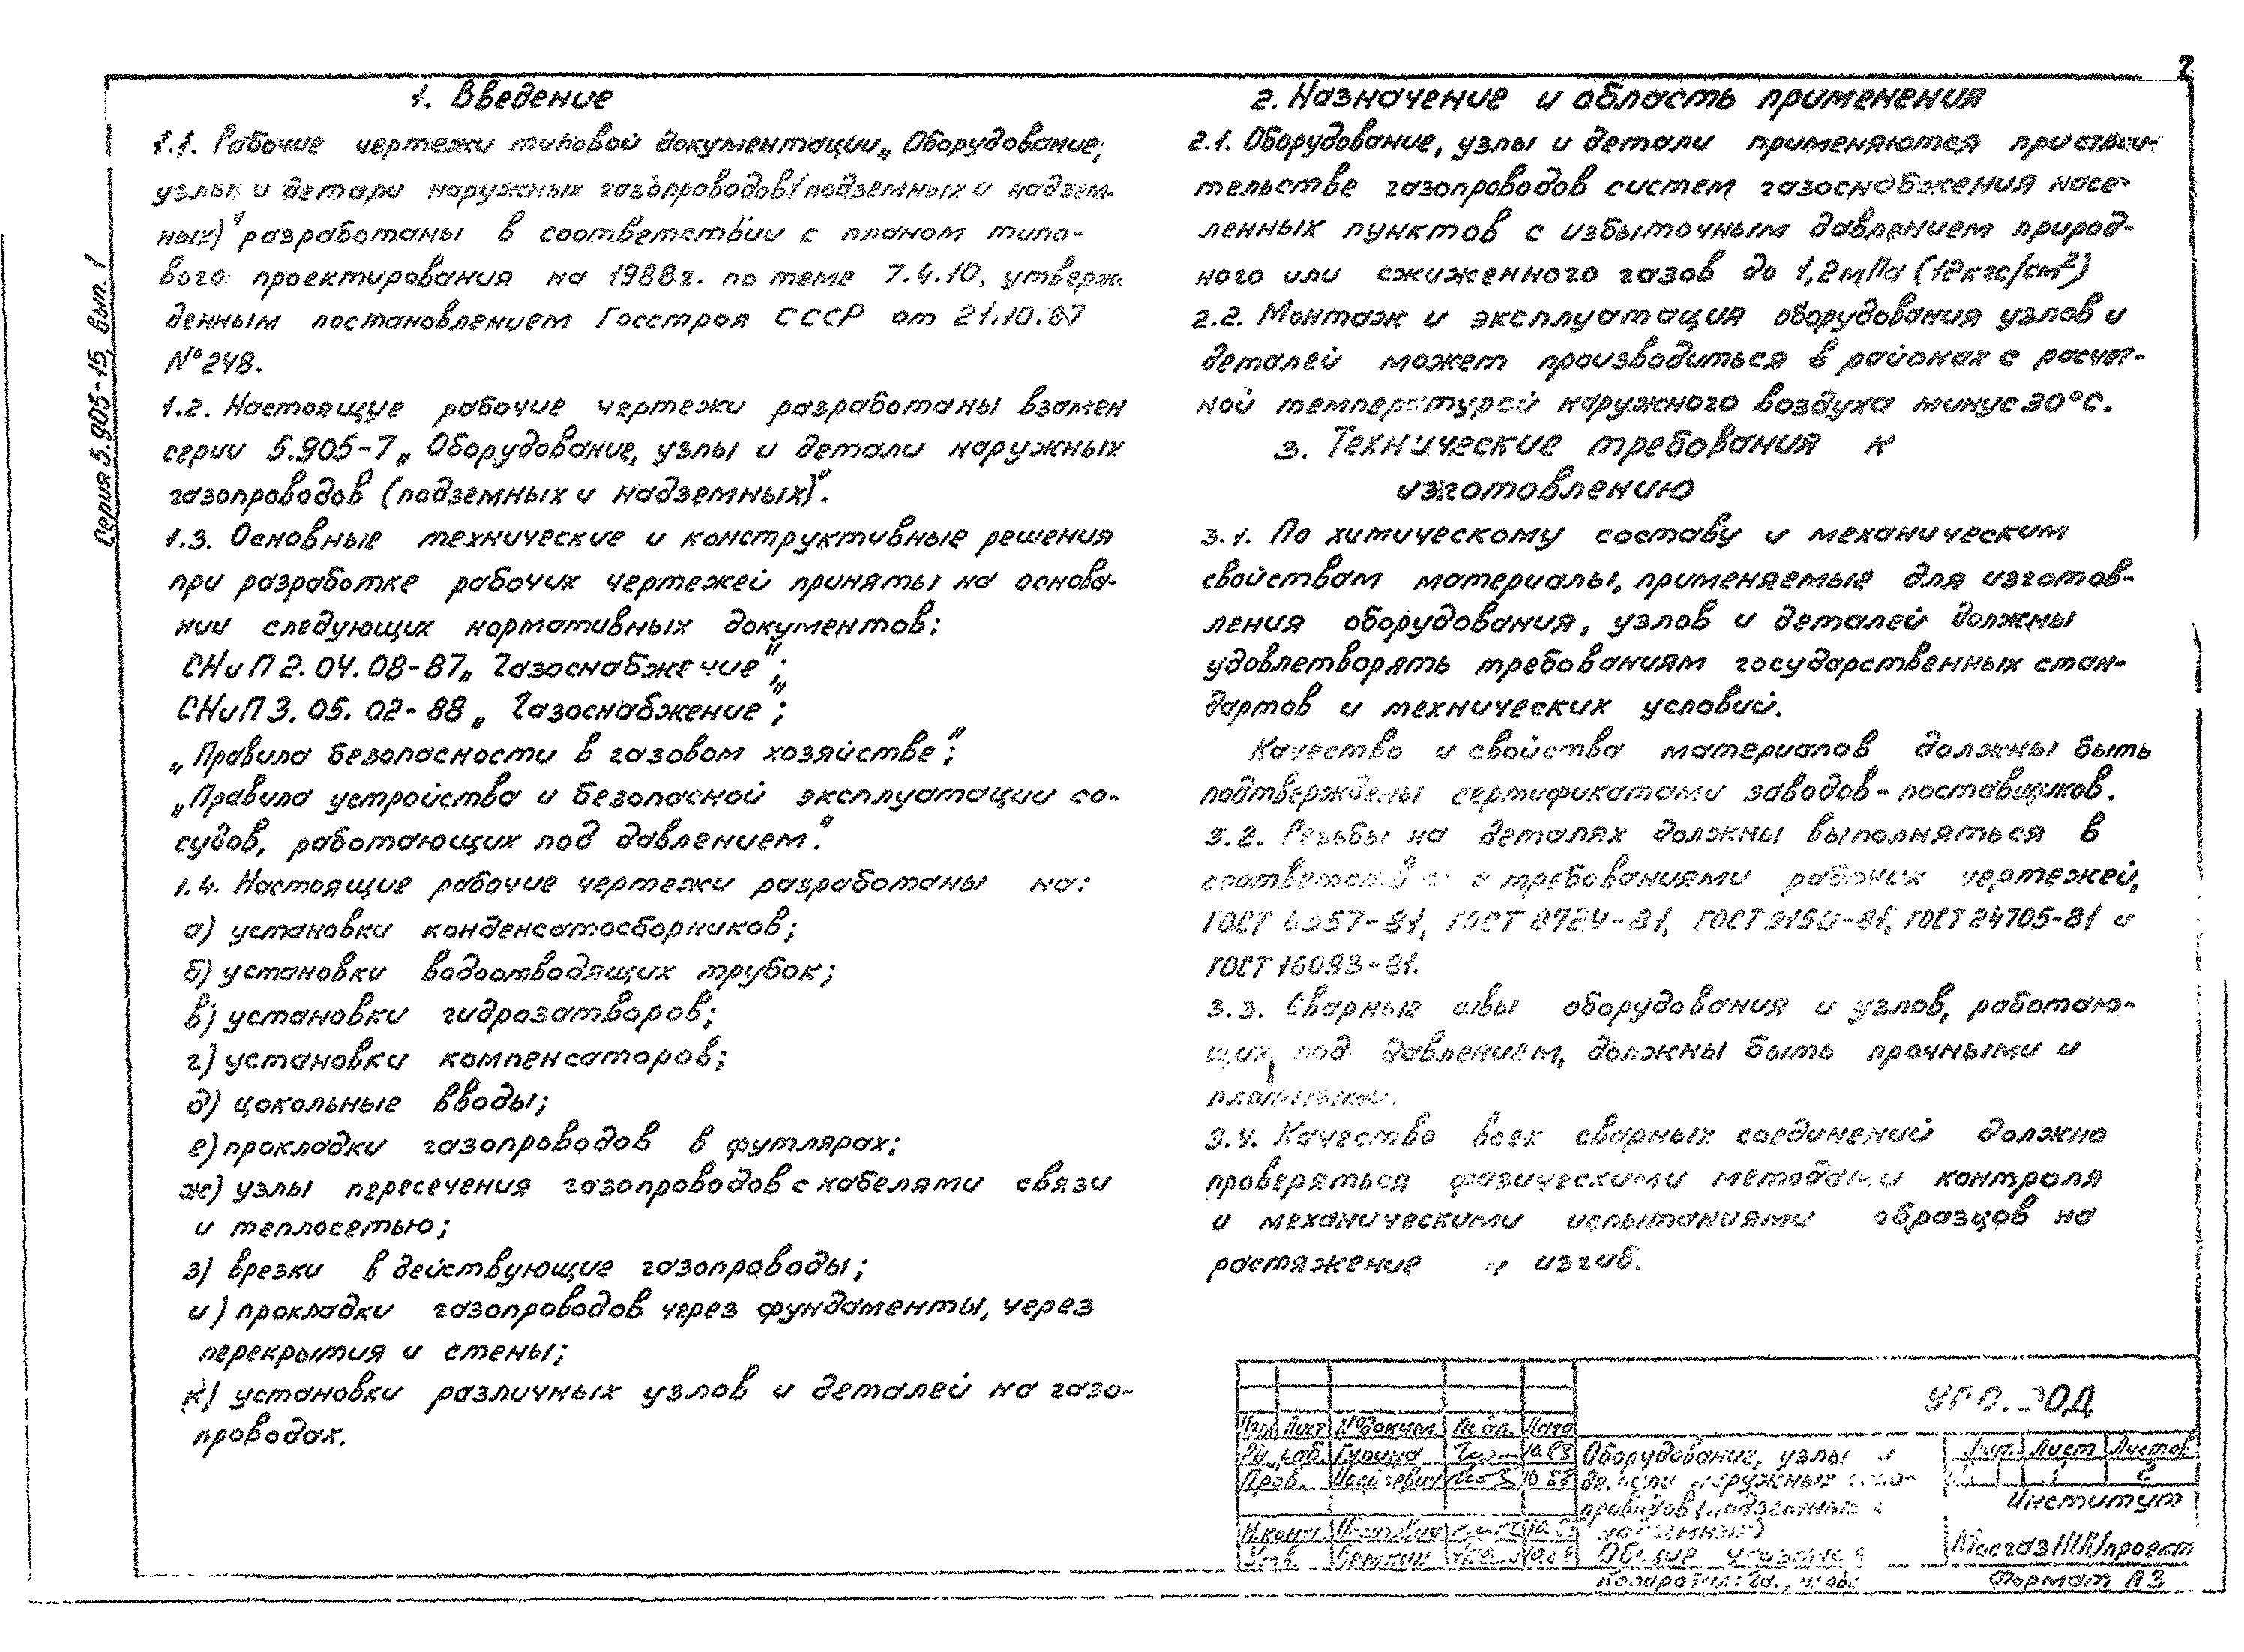 2
Серия 5.905-15, вып. 1
1. Введение
1.1. Рабочие чертежи типовой документации „Оборудование,
узлы и детали наружных газопроводов (подземных и надзем-
ных)" разработаны в соответствии с планом типо-
вого проектирования на 1988г. по теме 7.4.10, утверж-
денным постановлением Госстроя СССР от 21.10.87
№248.
1.2. Настоящие рабочие чертежи разработаны взамен
серии 5.905-7 „Оборудование, узлы и детали наружных
газопроводов (подземных и надземных)".
1.3. Основные технические и конструктивные решения
при разработке рабочих чертежей приняты на основа-
нии следующих нормативных документов:
СНиП 2.04.08-87 „Газоснабжение";
СНиП 3.05.02-88 „Газоснабжение";
„Правила безопасности в газовом хозяйстве";
„Правила устройства и безопасной эксплуатации со-
судов, работающих под давлением".
1.4. Настоящие рабочие чертежи разработаны на:
а) установки конденсатосборников;
б) установки водоотводящих трубок;
в) установки гидрозатворов;
г) установки компенсаторов;
д) цокольные вводы;
е) прокладки газопроводов в футлярах;
ж) узлы пересечения газопроводов с кабелями связи
и теплосетью;
з) врезки в действующие газопроводы;
и) прокладки газопроводов через фундаменты, через
перекрытия и стены;
к) установки различных узлов и деталей на газо-
проводах.
2. Назначение и область применения
2.1. Оборудование, узлы и детали применяются при строи-
тельстве газопроводов систем газоснабжения насе-
ленных пунктов с избыточным давлением природ-
ного или сжиженного газов до 1,2мПа (12кгс/см²)
2.2. Монтаж и эксплуатация оборудования узлов и
деталей может производиться в районах с расчет-
ной температурой наружного воздуха минус 30°С.
3. Технические требования к
изготовлению
3.1. По химическому составу и механическим
свойствам материалы, применяемые для изготов-
ления оборудования, узлов и деталей должны
удовлетворять требованиям государственных стан-
дартов и технических условий.
Качество и свойства материалов должны быть
подтверждены сертификатами заводов-поставщиков.
3.2. Резьбы на деталях должны выполняться в
соответствии с требованиями рабочих чертежей,
ГОСТ 6357-81, ГОСТ 8724-81, ГОСТ 9150-81, ГОСТ 24705-81 и
ГОСТ 16093-81.
3.3. Сварные швы оборудования и узлов, работаю-
щих под давлением, должны быть прочными и
плотными.
3.4. Качество всех сварных соединений должно
проверяться физическими методами контроля
и механическими испытаниями образцов на
растяжение и изгиб.
УГО. ОД
Изм. Лист №докум. Подп. Дата
Гурина 10.88
Пров. 10.88
Н.контр.
Утв. Семкин
Оборудование, узлы и
детали наружных газо-
проводов (подземных и
надземных)
Общие указания
Лит. Лист Листов
1 2
Институт
МосгазНИИпроект
Копировал:
Формат А3